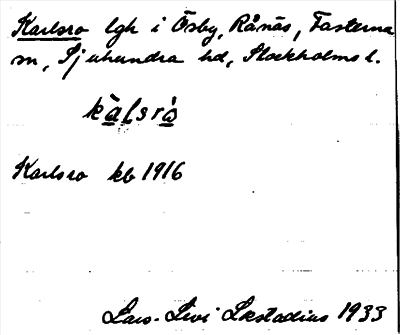 Karlsro lgh i Ösby, Rånäs, Fasterna
sn, Sjuhundra hd, Stockholms l.
kàlsrò
Karlsro kb 1916
Lars-Levi Læstadius 1933